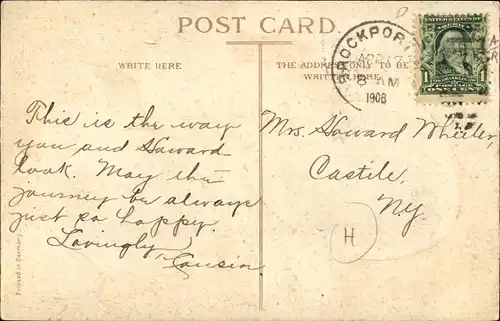 POST CARD.
WRITE HERE
THE ADDRESS ONLY TO BE
WRITTEN HERE
BROCKPORT
APR 17
8 AM
1908
UNITED STATES OF
AMERICA
1 1
FRANKLIN
ONE CENT
This is the way
you and Howard
look. May the
journey be always
just so happy.
Lovingly,
Cousin
Mrs. Howard Wheeler,
Castile,
N.Y.
H
Printed in Germany